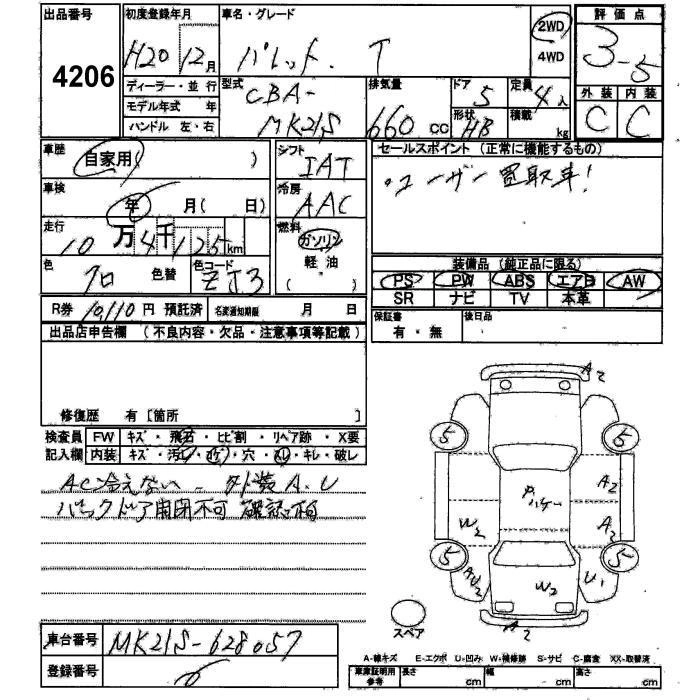 出品番号 4206
初度登録年月 H20 12月
車名・グレード パレット. T
2WD
4WD
評価点 3-5
外装 内装
C C
ディーラー・並行
モデル年式 年
ハンドル 左・右
型式 CBA-
MK21S
排気量 660 CC
ドア 5
形状 HB
定員 4人
積載 kg
車歴 自家用( )
車検 年 月( 日)
走行 10万4千125km
色 クロ 色替 色コード ZJ3
シフト IAT
冷房 AAC
燃料 ガソリン
軽油
( )
セールスポイント (正常に機能するもの)
・ユーザー買取車!
装備品 (純正品に限る)
PS PW ABS エアB AW
SR ナビ TV 本革
R券 10,110円 預託済 名変通知期限 月 日
保証書 有・無
後日品
出品店申告欄 (不良内容・欠品・注意事項等記載)
修復歴 有 [箇所 ]
検査員 FW キズ・飛石・ヒビ割・リペア跡・X要
記入欄 内装 キズ・汚レ・コゲ・穴・スレ・キレ・破レ
AC冷えない 外装A.U
バックドア開閉不可 確認不可
A2
5 5
A2
Pハゲー
W2 A2
5 5
AU2 W2 U1
A2
スペア
車台番号 MK21S-628057
登録番号
A-線キズ E-エクボ U-凹み W-補修跡 S-サビ C-腐食 XX-取替済
車庫証明用参考 長さ cm 幅 cm 高さ cm